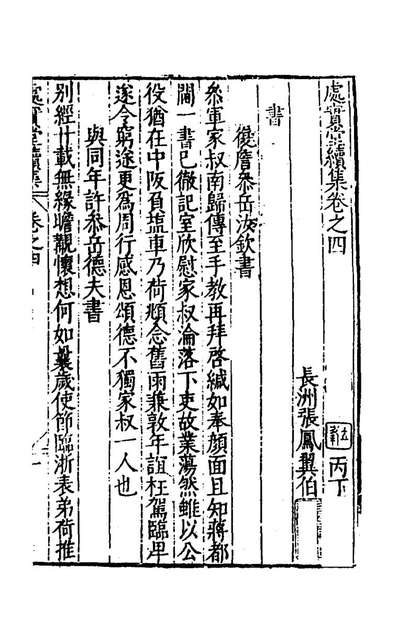 處實堂續集卷之四
丙下
長洲張鳳翼伯
書
復詹叅岳汝欽書
叅軍家叔南歸傳至手教再拜啓緘如奉顏面且知蔣都
閫一書已徹記室欣慰家叔淪落下吏故業蕩然雖以公
役猶在中阪負鹽車乃荷頫念舊雨兼敦年誼枉駕臨卑
遂令窮途更為周行感恩頌德不獨家叔一人也
與同年許叅岳德夫書
别經廿載無緣瞻覯懷想何如曩歲使節臨浙表弟荷推
處實堂續集
卷之四
一